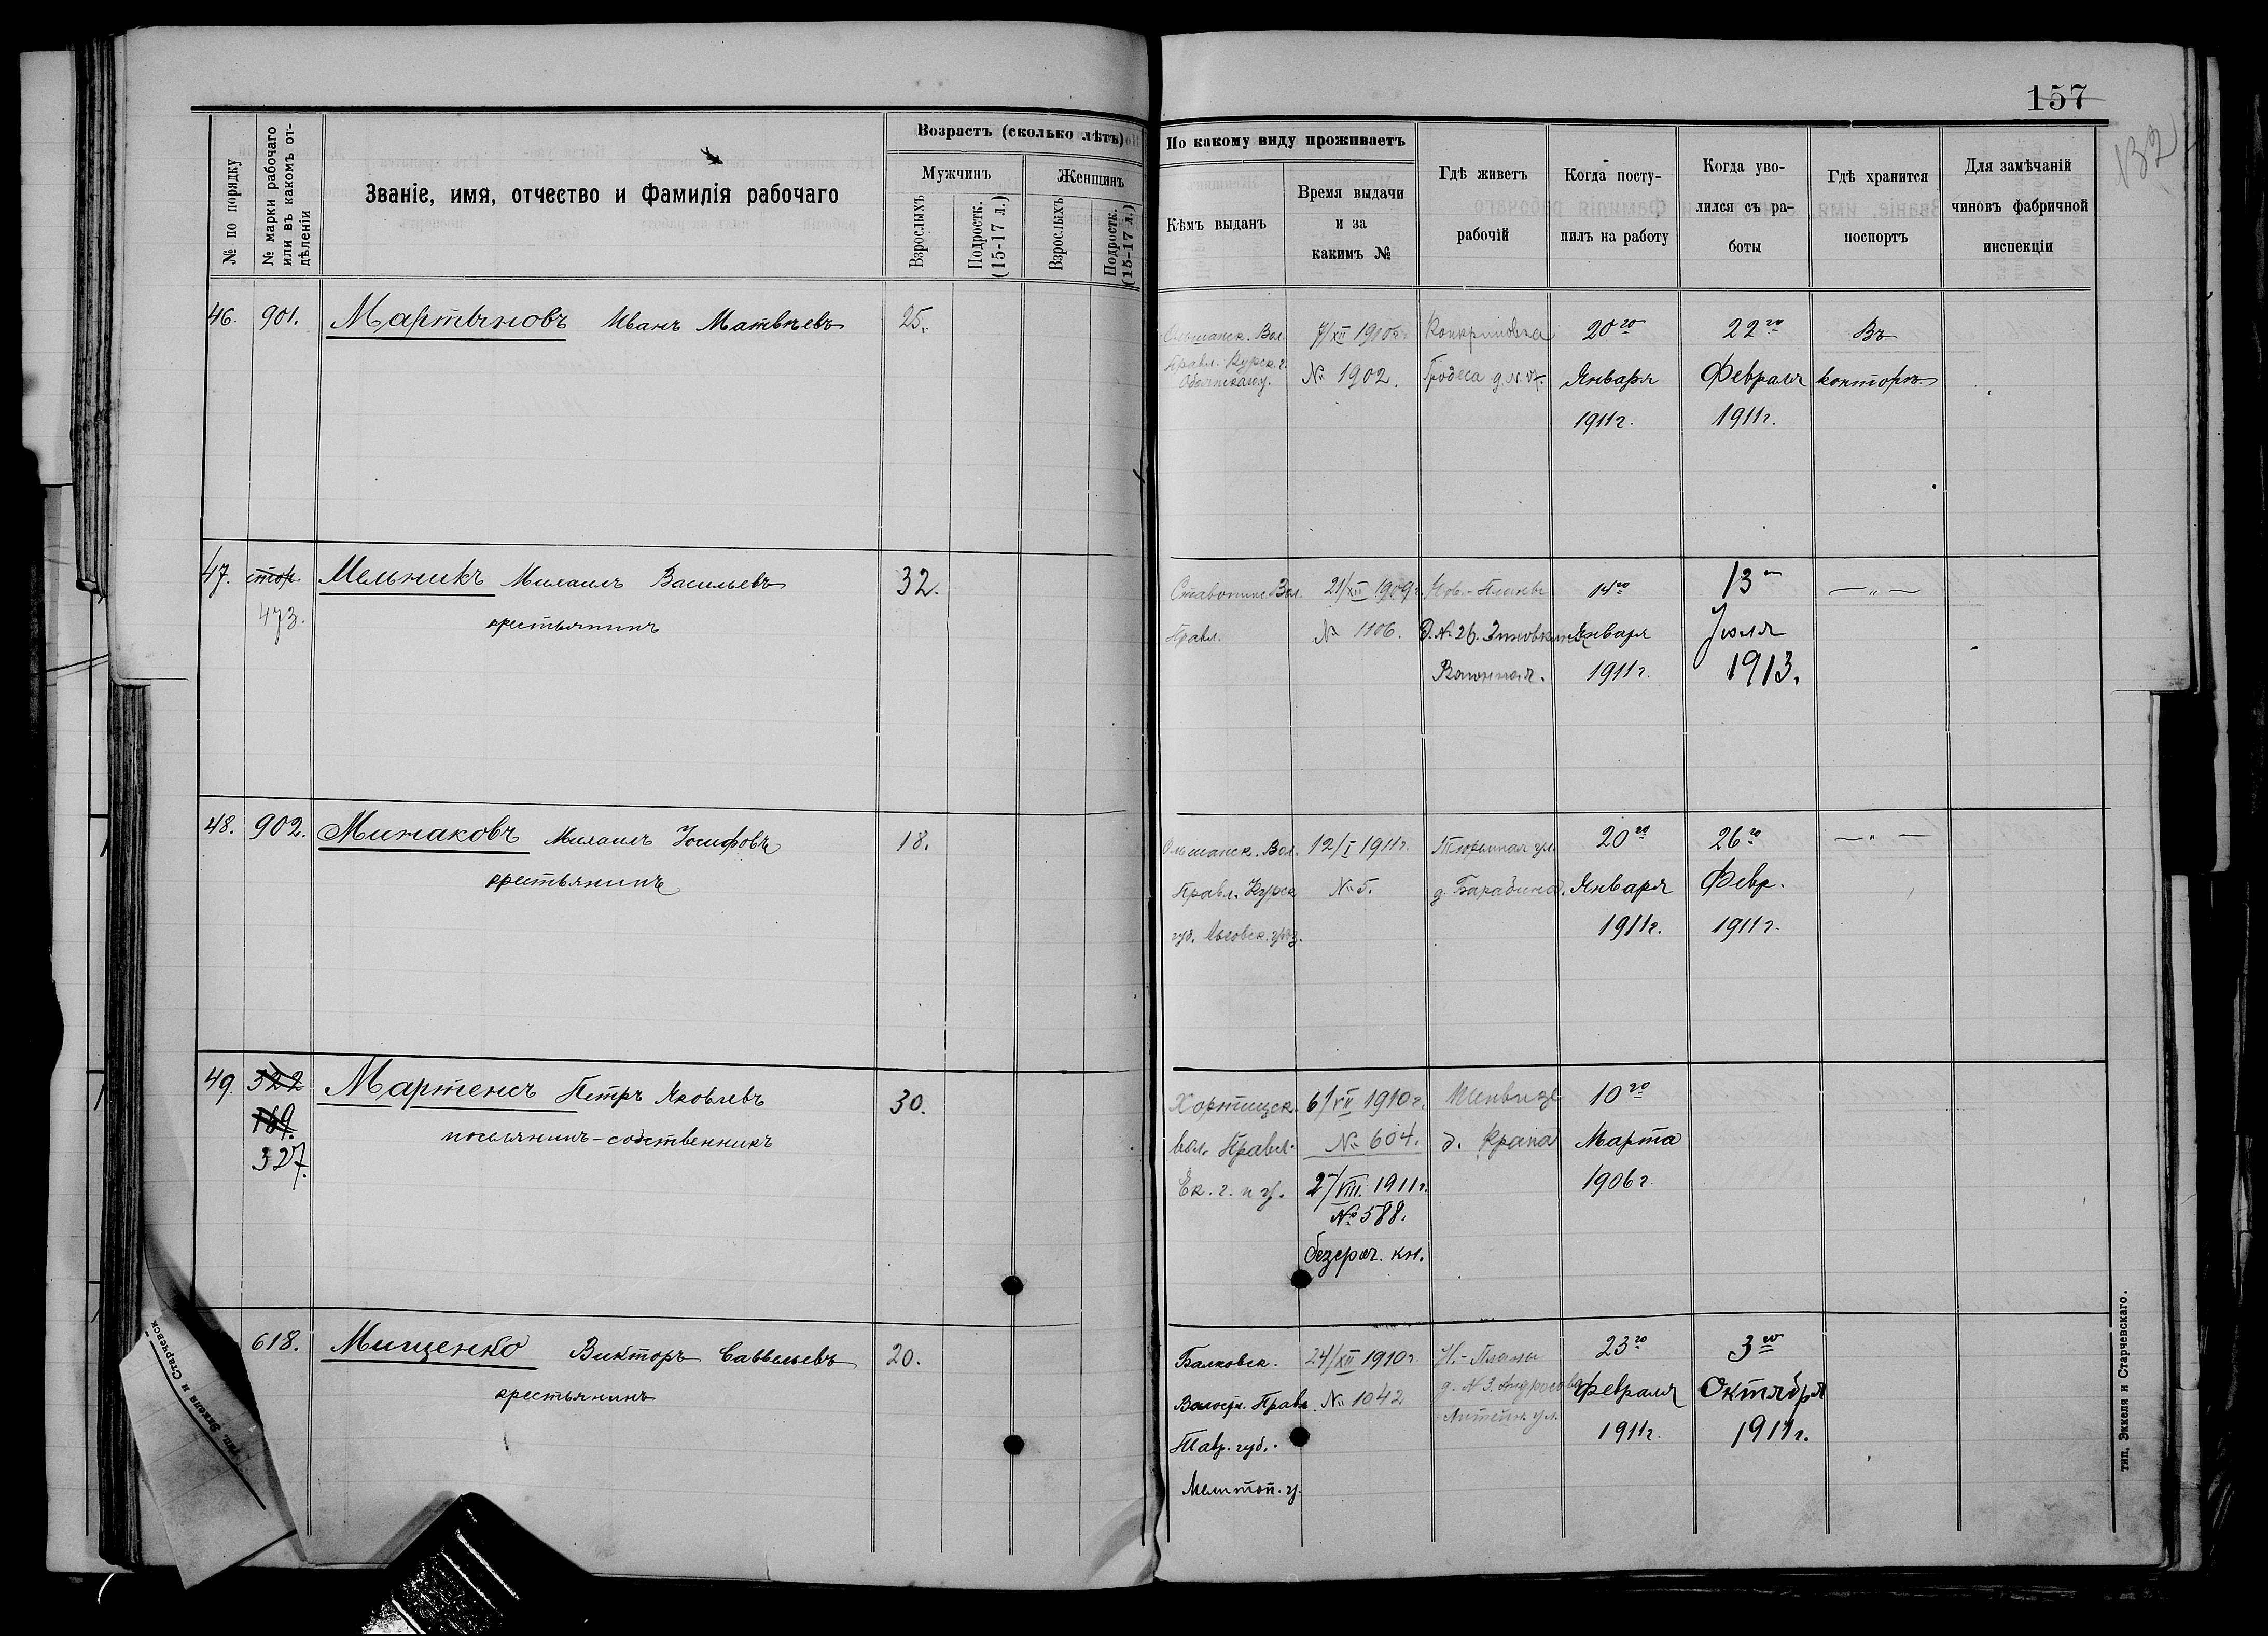 157
132
№ по порядку
№ марки рабочаго или въ какомъ отдѣленіи
Званіе, имя, отчество и Фамилія рабочаго
Возрастъ (сколько лѣтъ)
Мужчинъ
Женщинъ
Взрослыхъ
Подростк. (15-17 л.)
Взрослыхъ
Подростк. (15-17 л.)
По какому виду проживаетъ
Кѣмъ выданъ
Время выдачи
и за
какимъ №
Гдѣ живетъ
рабочій
Когда посту-
пилъ на работу
Когда уво-
лился съ ра-
боты
Гдѣ хранится
поспортъ
Для замѣчаній
чиновъ фабричной
инспекціи
46. 901. Мартыновъ Иванъ Матвѣевъ 25.
Вол.
Правл. Курск. г.
7/XII 1910 г.
№ 1902.
20го
Января
1911 г.
22го
Февраля
1911 г.
Въ
конторѣ
47. стор.
473.
Мельникъ Михаилъ Васильевъ
крестьянинъ
32.
Вол.
Правл.
21/XII 1909 г.
№ 1106.
Нов.-Планы
д. № 26.
14го
Января
1911 г.
13го
Іюля
1913.
— " —
48. 902. Минаковъ Михаилъ Іосифовъ
крестьянинъ
18.
Ольшанск. Вол.
Правл. Курск
губ. Льговск. уѣз.
12/I 1911 г.
№ 5.
Тюремная ул.
д. Барабина.
20го
Января
1911 г.
26го
Февр.
1911 г.
— " —
49. 322
169.
327.
Мартенсъ Петръ Яковлевъ
поселянинъ-собственникъ
30.
Хортицск.
вол. Правл.
Ек. г. и у.
6/VII 1910 г.
№ 604.
27/VIII. 1911 г.
№ 588.
безсроч. кн.
Шенвизе
д. Крана
10го
Марта
1906 г.
618. Мищенко Викторъ Саввельевъ
крестьянинъ
20.
Балковск.
Волостн. Правл.
Тавр. губ.
Мелитоп. у.
24/XII 1910 г.
№ 1042
Н.-Планы
д. № 3. Андросова
23го
Февраля
1911 г.
3го
Октября
1911 г.
тип. Эккеля и Старчевск
тип. Эккеля и Старчевскаго.